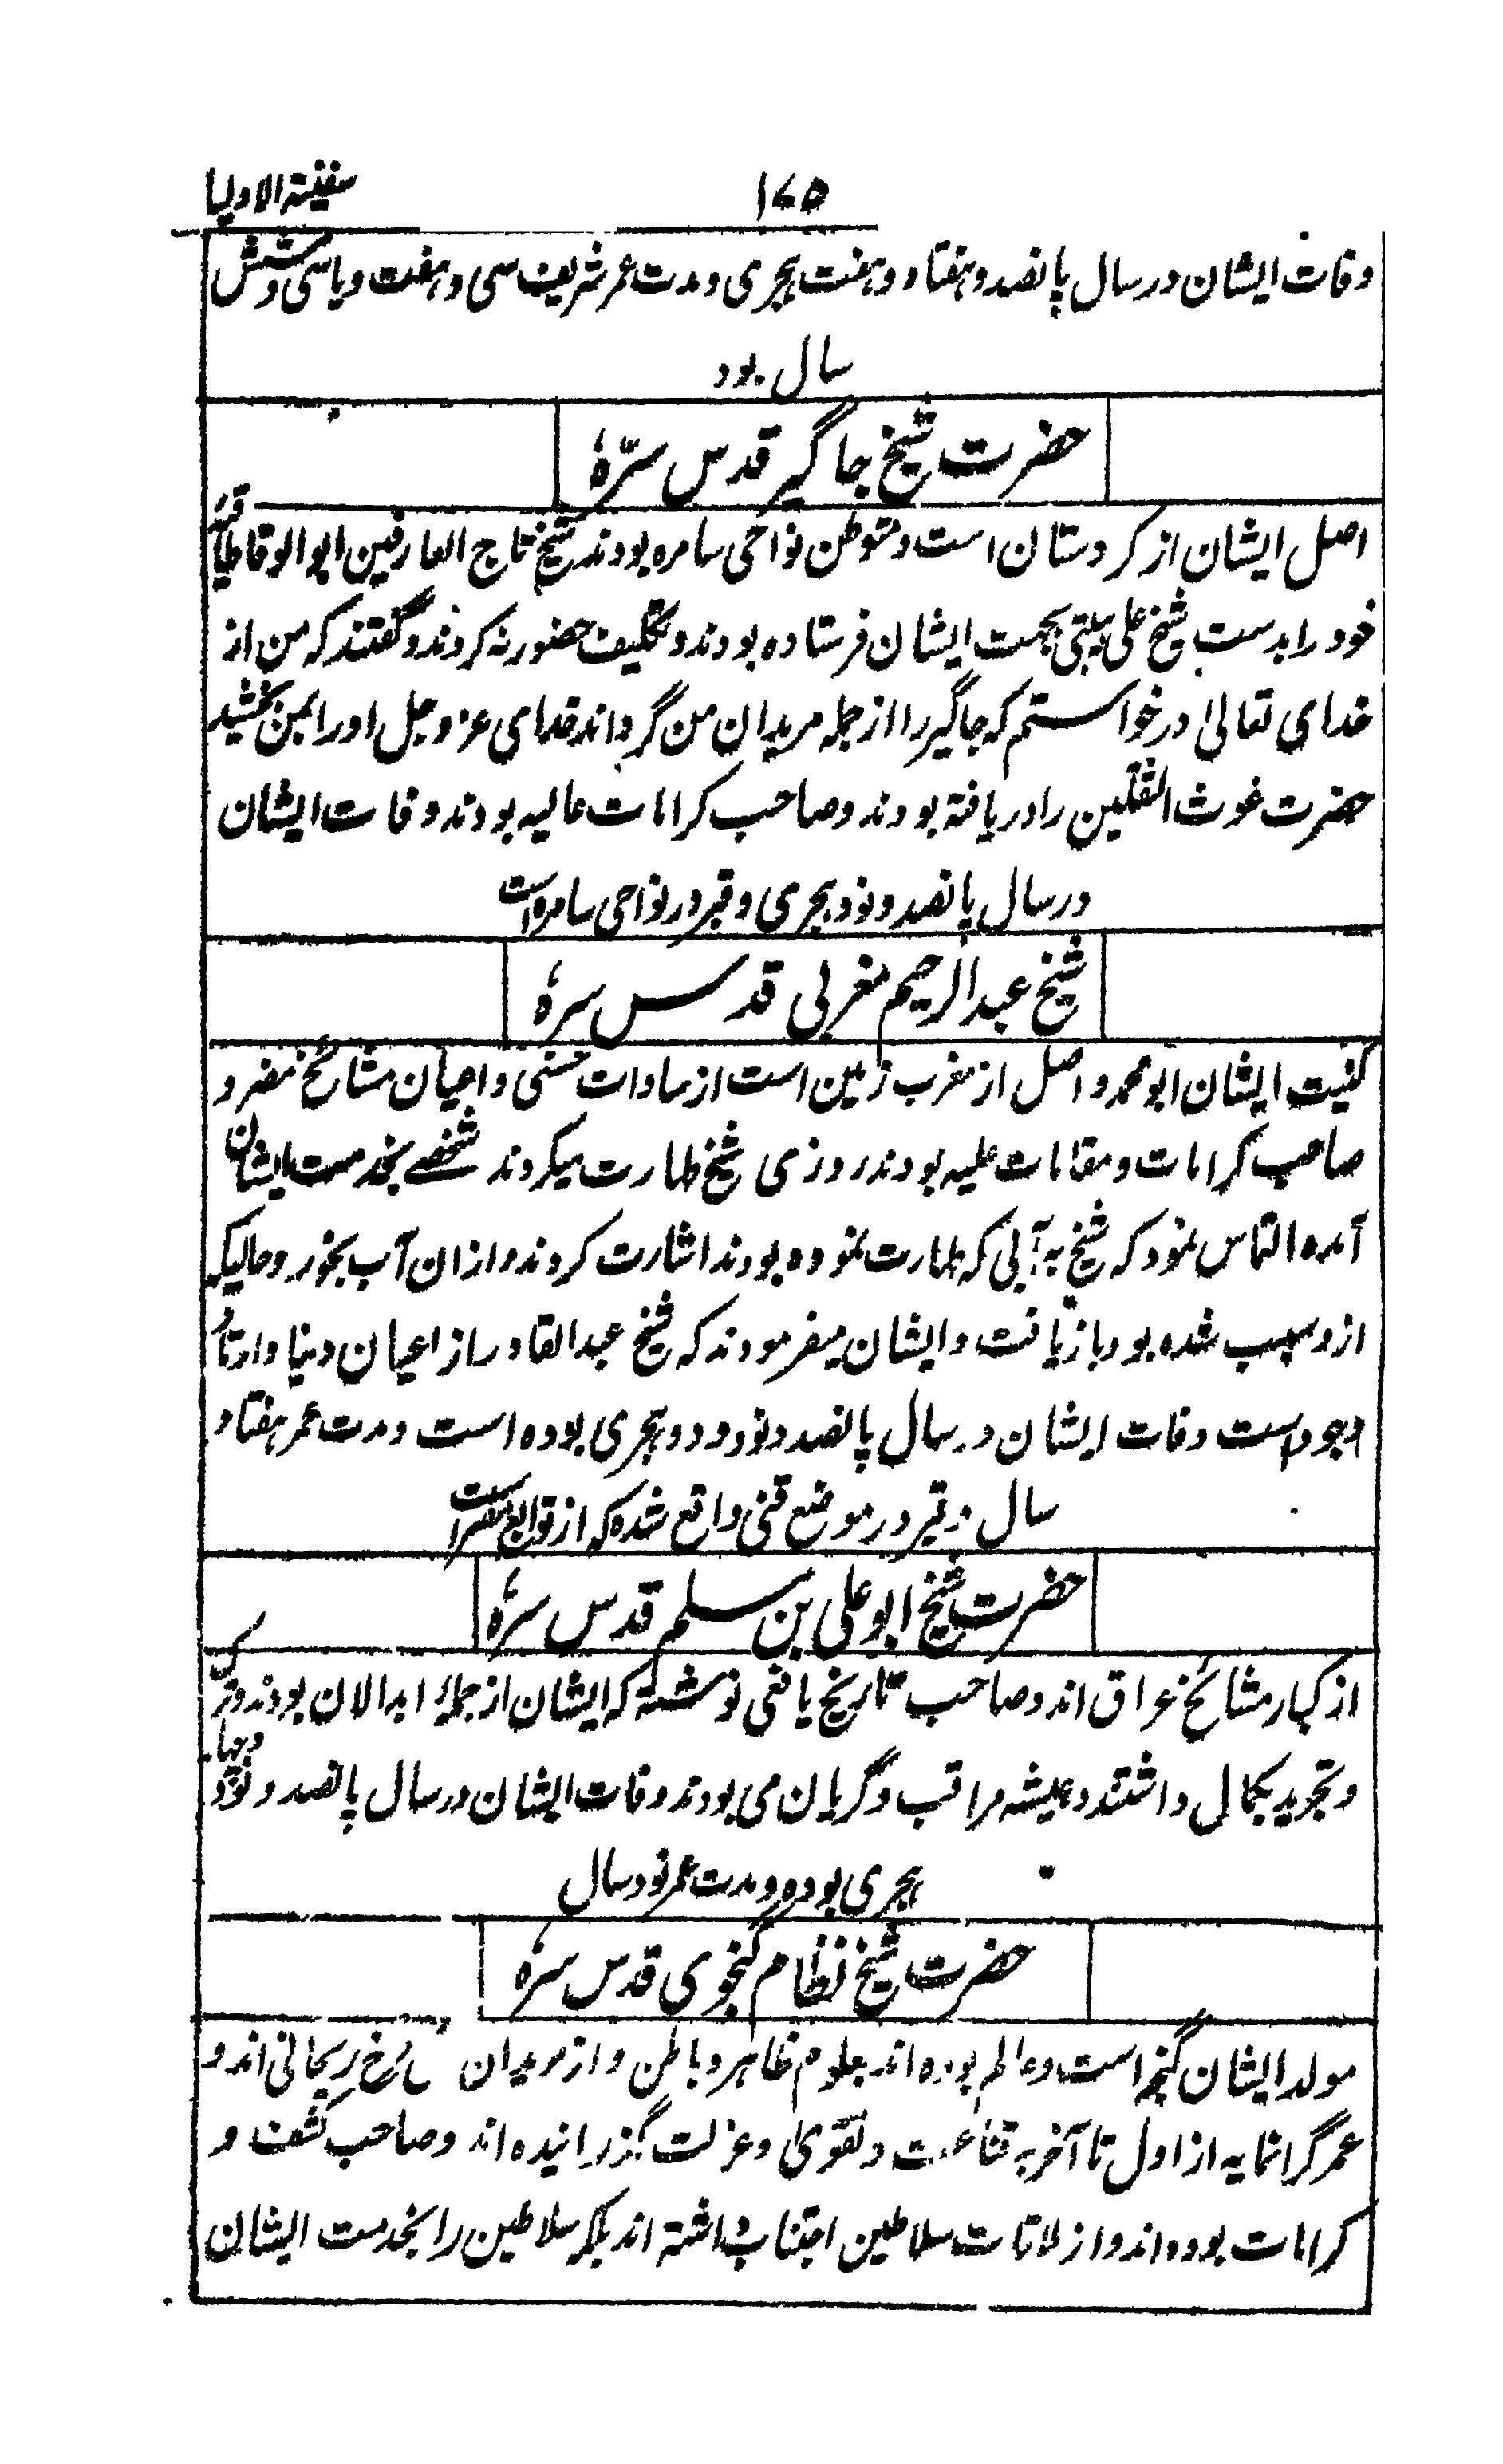 سفینۃ الاولیا
۱۷۵
وفات ایشان در سال پانصد و ہفتاد و ہفت ہجری و مدت عمر شریف سی و ہفت و یا سی و شش
سال بود
حضرت شیخ جاگیر قدس سرّہٗ
اصل ایشان از کردستان است و متوطن نواحی سامرہ بودند شیخ تاج العارفین ابوالوفا طاقیہ
خود را بدست شیخ علی ہیتی بجہت ایشان فرستادہ بودند و تکلیف حضور نہ کردند و گفتند کہ من از
خدای تعالیٰ درخواستم کہ جاگیر را از جملہ مریدان من گرداند خدای عز و جل او را بمن بخشید
حضرت غوث الثقلین را دریافتہ بودند و صاحب کرامات عالیہ بودند وفات ایشان
در سال پانصد و نود ہجری و قبر در نواحی سامرہ است
شیخ عبدالرحیم مغربی قدس سرہٗ
کنیت ایشان ابو محمد و اصل از مغرب زمین است از سادات حسنی و اعیان مشائخ مصر و
صاحب کرامات و مقامات علیہ بودند روزی شیخ طہارت میکردند شخصے بخدمت ایشان
آمدہ التماس نمود کہ شیخ بہ آبی کہ طہارت نمودہ بودند اشارت کردند و ازان آب بخورد حالیکہ
ازو سلب شدہ بود باز یافت و ایشان میفرمودند کہ شیخ عبدالقادر از اعیان دنیا و اوتاد
وجود است وفات ایشان در سال پانصد و نود و دو ہجری بودہ است و مدت عمر ہفتاد
سال و قبر در موضع قنی واقع شدہ کہ از توابع مصر است
حضرت شیخ ابو علی بن مسلم قدس سرہٗ
از کبار مشائخ عراق اند و صاحب تاریخ یافعی نوشتہ کہ ایشان از جملۂ ابدالان بودند و ترک
و تجرید بکمال داشتند و ہمیشہ مراقب و گریان می بودند وفات ایشان در سال پانصد و نود و چہار
ہجری بودہ و مدت عمر نود سال
حضرت شیخ نظام گنجوی قدس سرہٗ
مولد ایشان گنجہ است و عالم بودہ اند بعلوم ظاہر و باطن و از مریدان فرخ ریحانی اند و
عمر گرانمایہ از اول تا آخر بہ قناعت و تقویٰ و عزلت گذرانیدہ اند و صاحب کشف و
کرامات بودہ اند و از ملاقات سلاطین اجتناب داشتہ اند بلکہ سلاطین را بخدمت ایشان